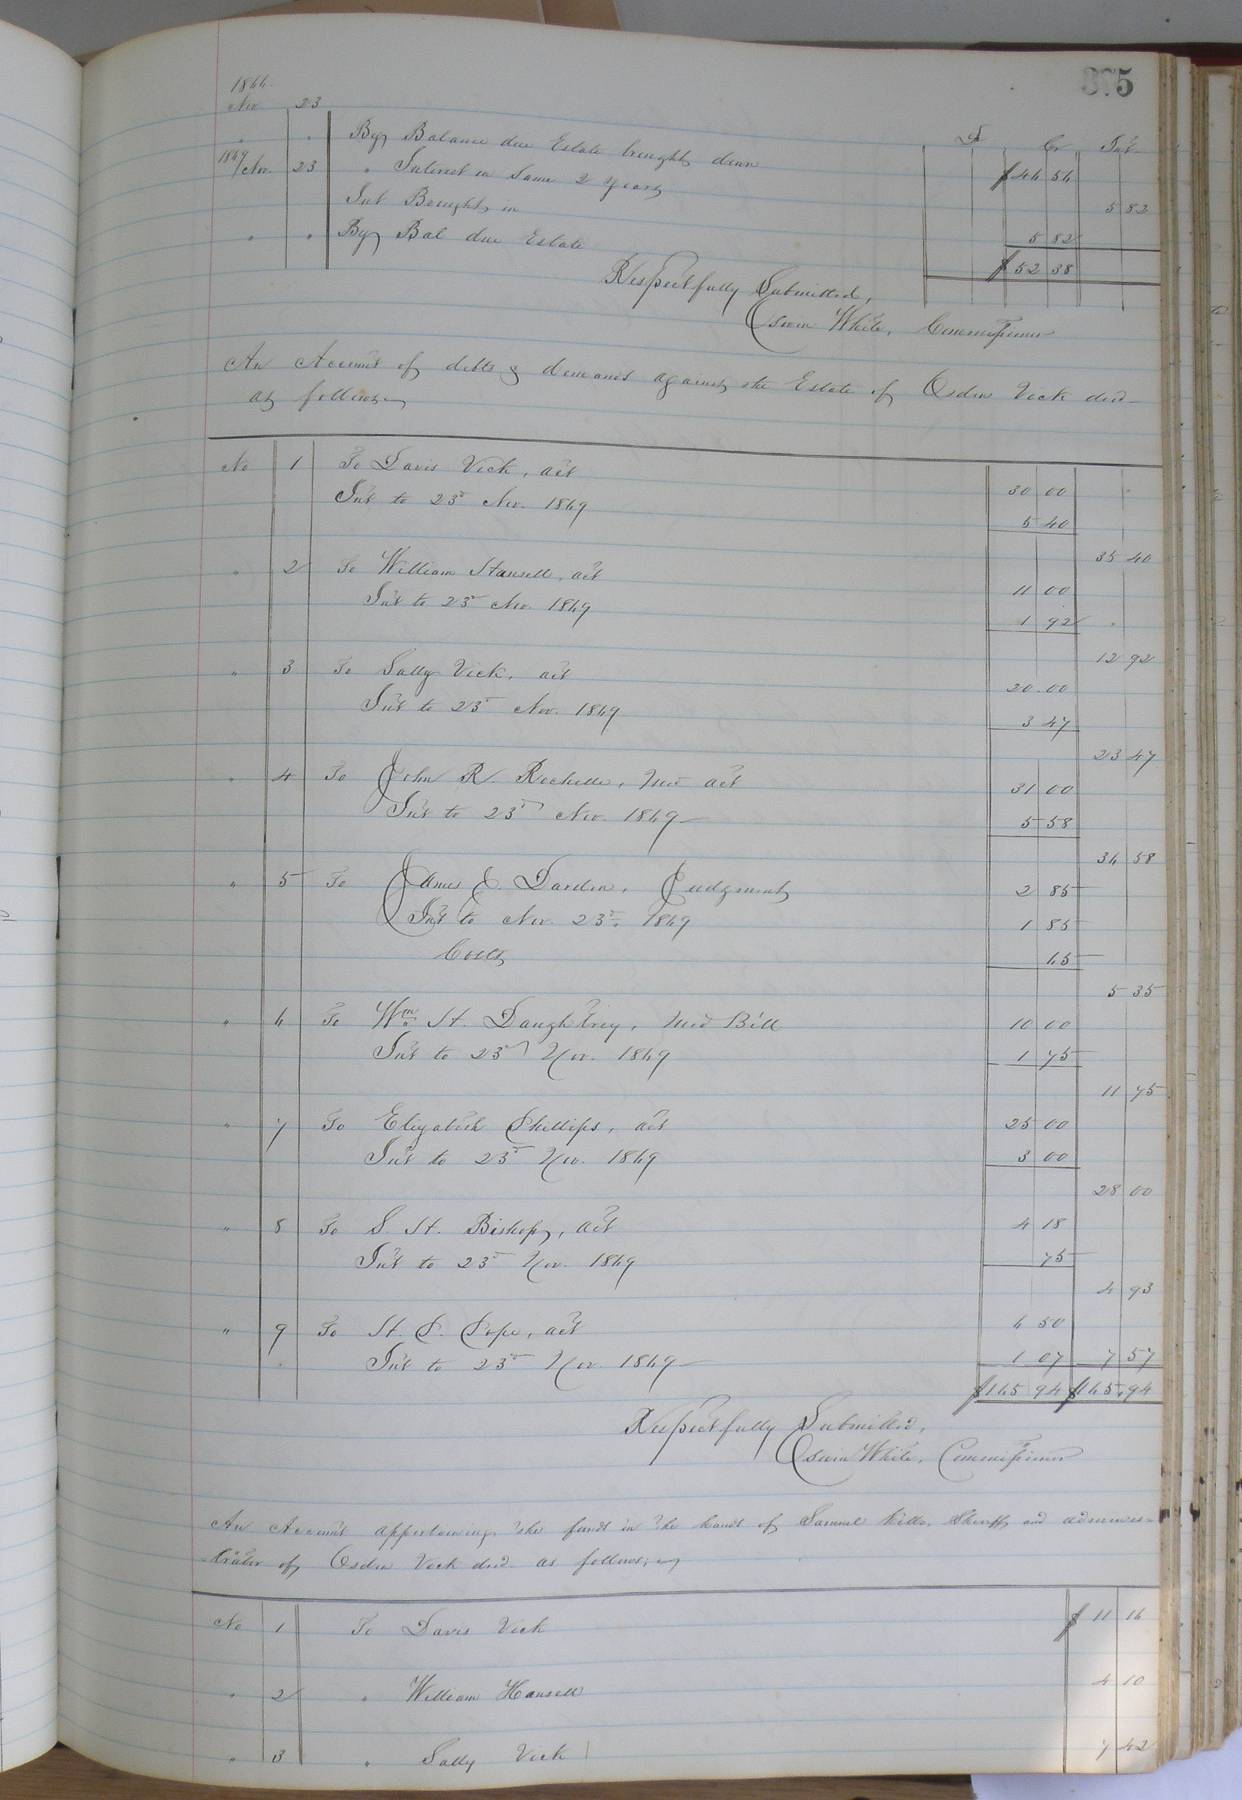 375
1866
Nov 23
Dr Cr Int
" " By Balance due Estate brought down $46 56
1869 Nov. 23 " Interest on Same 2 years 5 82
Int Brought in 5 82
" " By Bal due Estate $52 38
Respectfully Submitted,
White, Commissioner
An Account of debts & demands against the Estate of Vick decd
as follows
No 1 To Davis Vick, act 30 00
Int to 23d Nov. 1869 5 40
35 40
" 2 To William Hansell, act 11 00
Int to 23d Nov. 1869 1 92
12 92
" 3 To Sally Vick, act 20.00
Int to 23d Nov. 1869 3 47
23 47
" 4 To John R. Rochelle, Med act 31 00
Int to 23d Nov. 1869 5 58
36 58
" 5 To James E. Darden, Judgment 2 85
Int to Nov. 23d, 1869 1 85
Costs 65
5 35
" 6 To Wm H. Daughtrey, Med Bill 10 00
Int to 23d Nov. 1869 1 75
11 75
" 7 To Elizabeth Phillips, act 25 00
Int to 23d Nov. 1869 3 00
28 00
" 8 To S. H. Bishop, act 4 18
Int to 23d Nov. 1869 75
4 93
" 9 To H. P. Pope, act 6 50
" Int to 23d Nov 1869 1 07 7 57
$165 94 $165.94
Respectfully Submitted,
White, Commissioner
An Account apportioning the funds in the hands of Samuel Kello, Sheriff and adminis-
trator of Vick decd. as follows:
No 1 To Davis Vick $11 16
" 2 " William Hansell 4 10
" 3 " Sally Vick 7 42